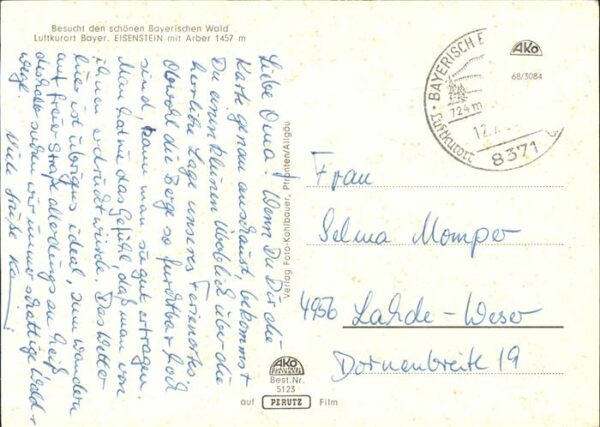 Besucht den schönen Bayerischen Wald
Luftkurort Bayer. EISENSTEIN mit Arber 1457 m
Liebe Oma! Wenn Du Dir die
Karte genau anschaust, bekommst
Du einen kleinen Überblick über die
herrliche Lage unseres Ferienortes.
Obwohl die Berge so furchtbar hoch
sind, kann man sie gut ertragen.
Man hat nie das Gefühl, daß man von
ihnen erdrückt würde. Das Wetter
hier ist übrigens ideal, zum wandern
auf freier Straße allerdings zu heiß
deshalb suchen wir immer schattige Wald-
wege.
Viele Grüße
Verlag Foto-Kohlbauer, Pfronten/Allgäu
AKO
Best.Nr.
5123
auf PERUTZ Film
AKO
68/3084
BAYERISCH E
724 m
Luftkurort
8371
Frau
Selma Momper
4956 Lahde-Weser
Dornenbreite 19